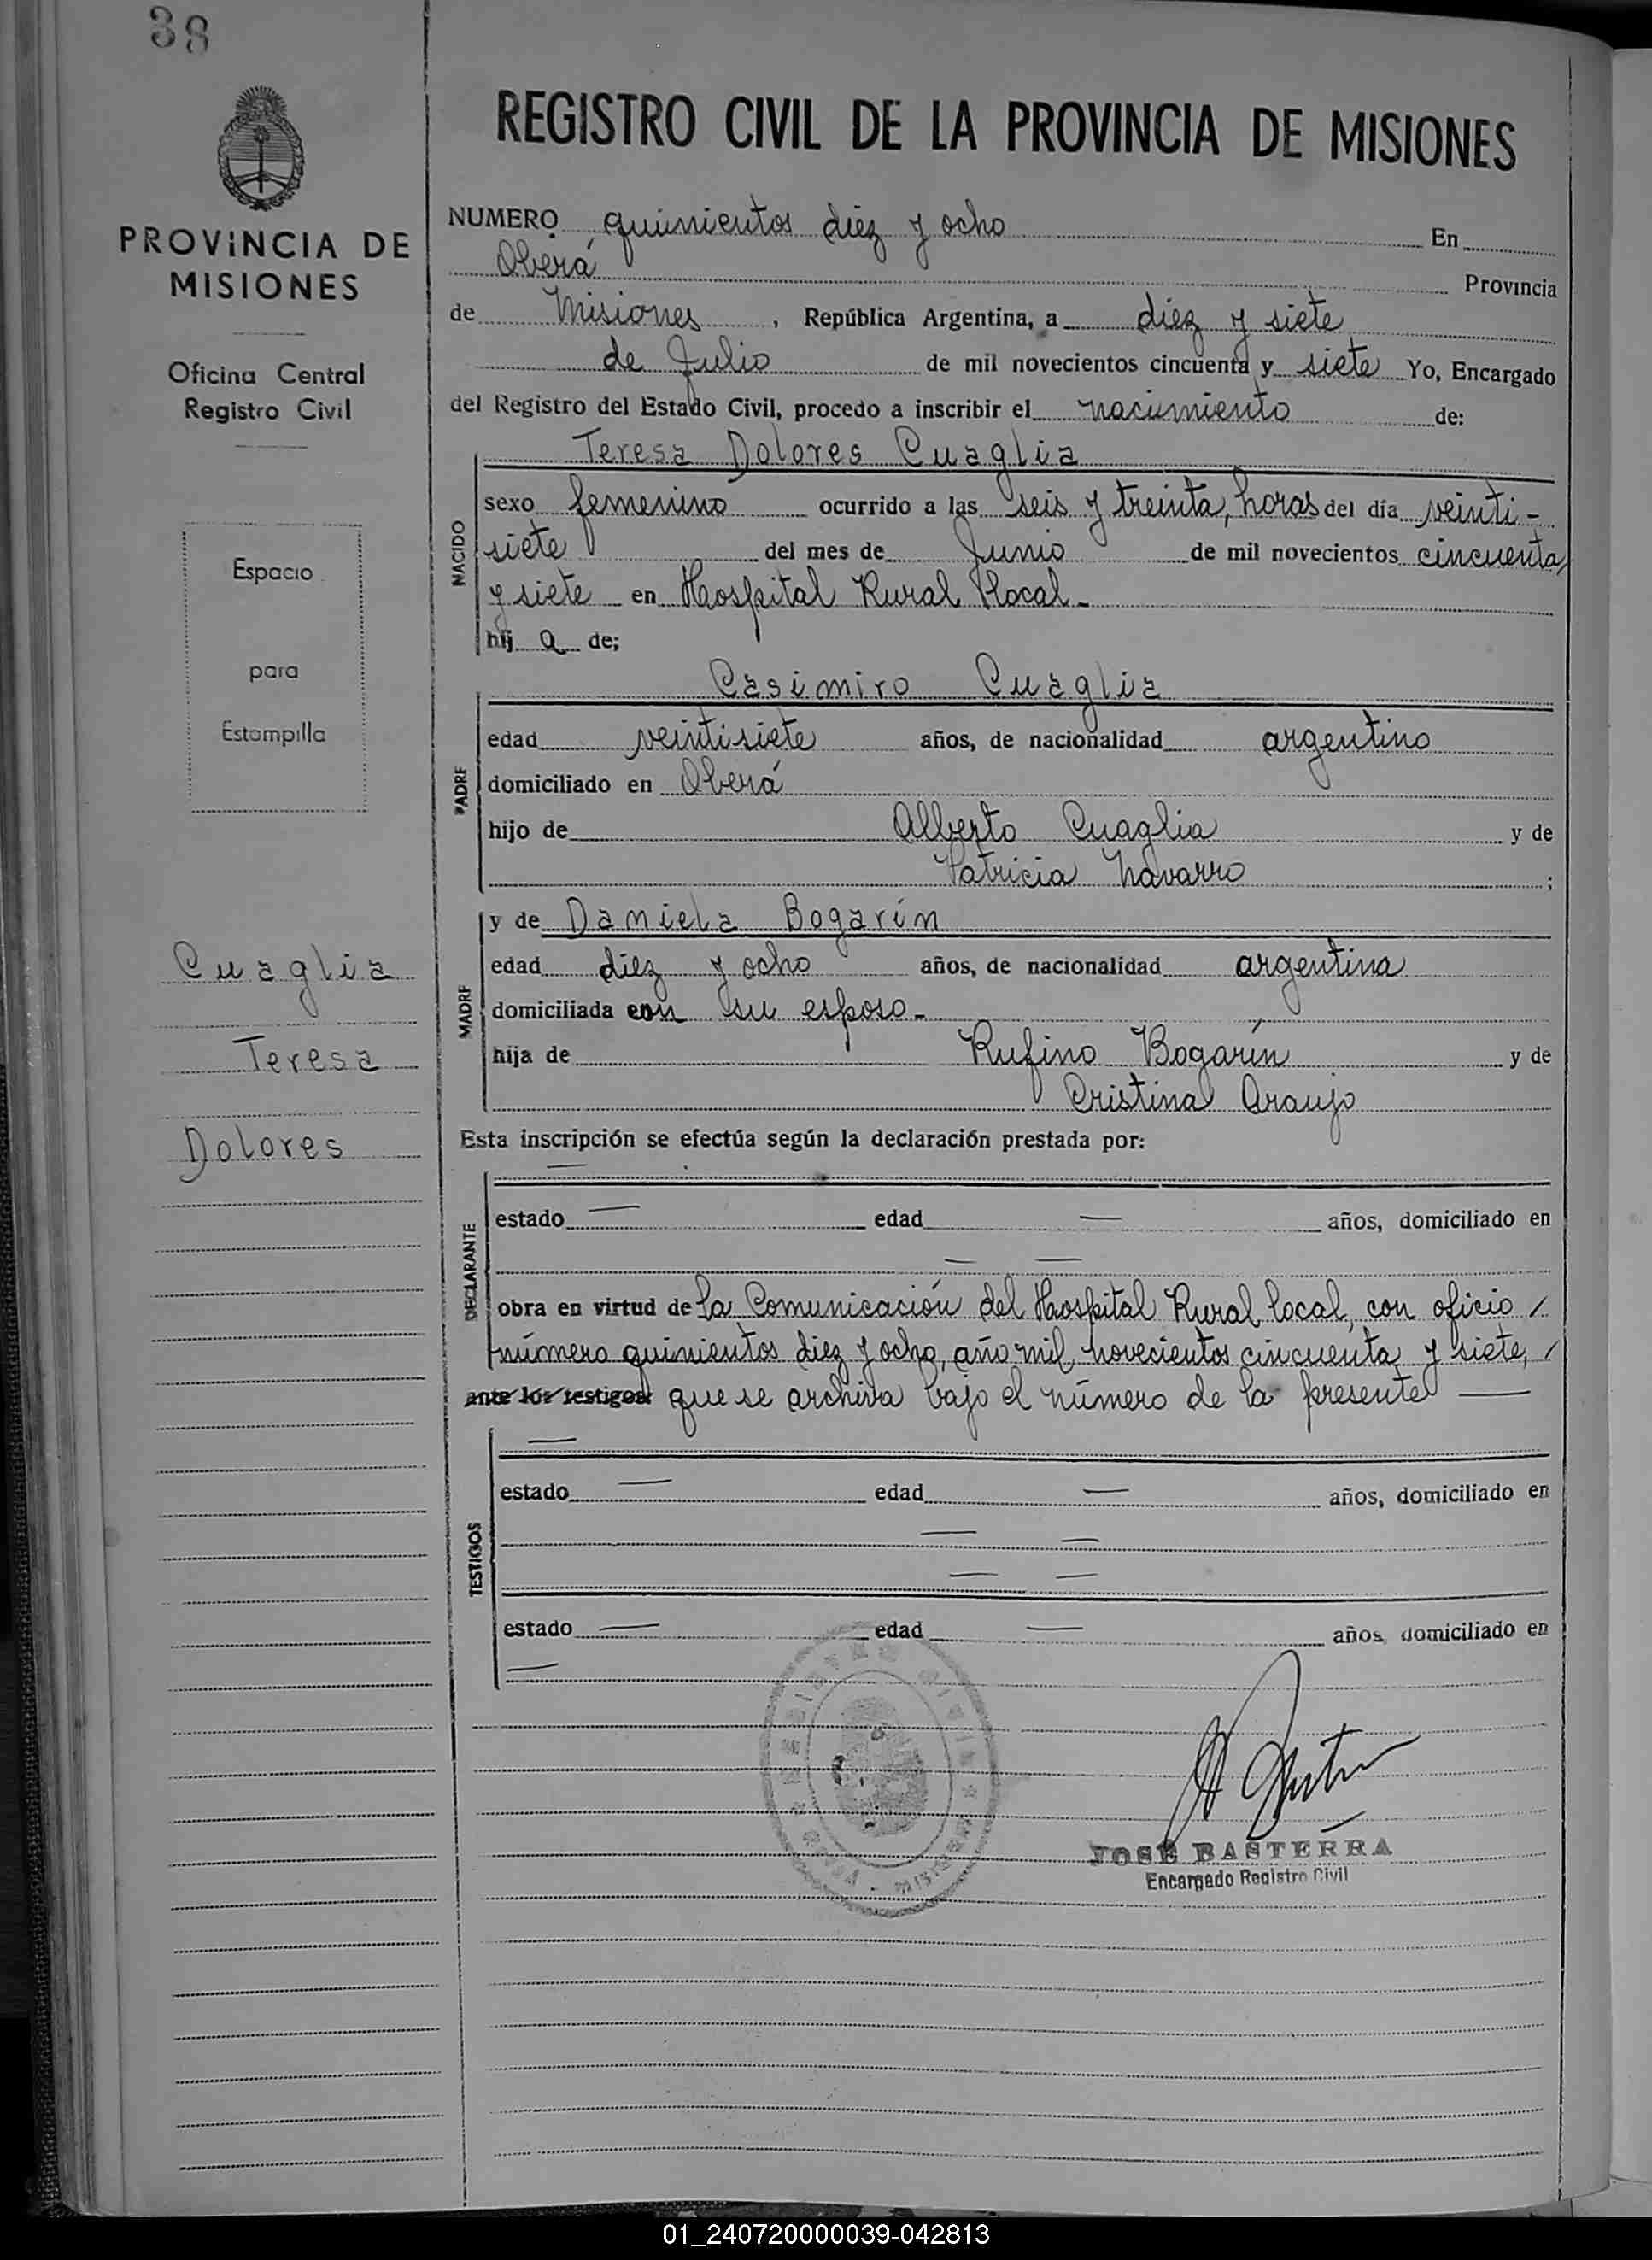 38
PROVINCIA DE
MISIONES
Oficina Central
Registro Civil
Espacio
para
Estampilla
Cuaglia
Teresa
Dolores
REGISTRO CIVIL DE LA PROVINCIA DE MISIONES
NUMERO quinientos diez y ocho En
Oberá Provincia
de Misiones, República Argentina, a diez y siete
de Julio de mil novecientos cincuenta y siete Yo, Encargado
del Registro del Estado Civil, procedo a inscribir el nacimiento de:
Teresa Dolores Cuaglia
NACIDO
sexo femenino ocurrido a las seis y treinta, horas del día veinti-
siete del mes de Junio de mil novecientos cincuenta
y siete en Hospital Rural Local-
hij a de;
Casimiro Cuaglia
PADRE
edad veintisiete años, de nacionalidad argentino
domiciliado en Oberá
hijo de Alberto Cuaglia y de
Patricia Navarro ;
y de Daniela Bogarín
MADRE
edad diez y ocho años, de nacionalidad argentina
domiciliada con su esposo-
hija de Rufino Bogarín y de
Cristina Araujo
Esta inscripción se efectúa según la declaración prestada por:
DECLARANTE
estado — edad — años, domiciliado en
— —
obra en virtud de la Comunicación del Hospital Rural local, con oficio /
número quinientos diez y ocho, año mil novecientos cincuenta y siete, /
ante los testigos que se archiva bajo el número de la presente —
TESTIGOS
estado — edad — años, domiciliado en
— —
— —
estado — edad — años, domiciliado en
—
REGISTRO CIVIL
MISIONES
JOSÉ BASTERRA
Encargado Registro Civil
01_240720000039-042813